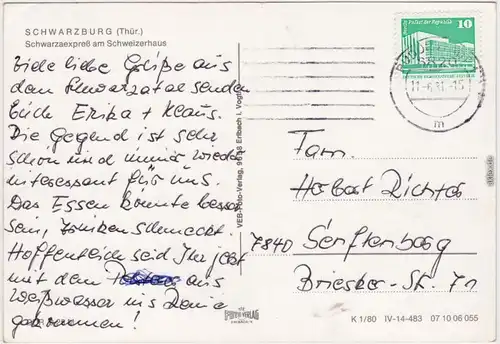 SCHWARZBURG (Thür.)
Schwarzaexpreß am Schweizerhaus
Viele liebe Grüße aus
dem Schwarzatal senden
Euch Erika + Klaus.
Die Gegend ist sehr
schön und immer wieder
interessant für uns.
Das Essen könnte besser
sein, Trinken schmeckt.
Hoffentlich seid Ihr jetzt
mit dem aus
Weißwasser ins Reine
gekommen!
VEB Foto-Verlag, 9658 Erlbach i. Vogtl.
10
11.-6.81.-15
m
Fam.
Herbert Richter
7840 Senftenberg
Briesker-St. 71
K 1/80 IV-14-483 07 10 06 055